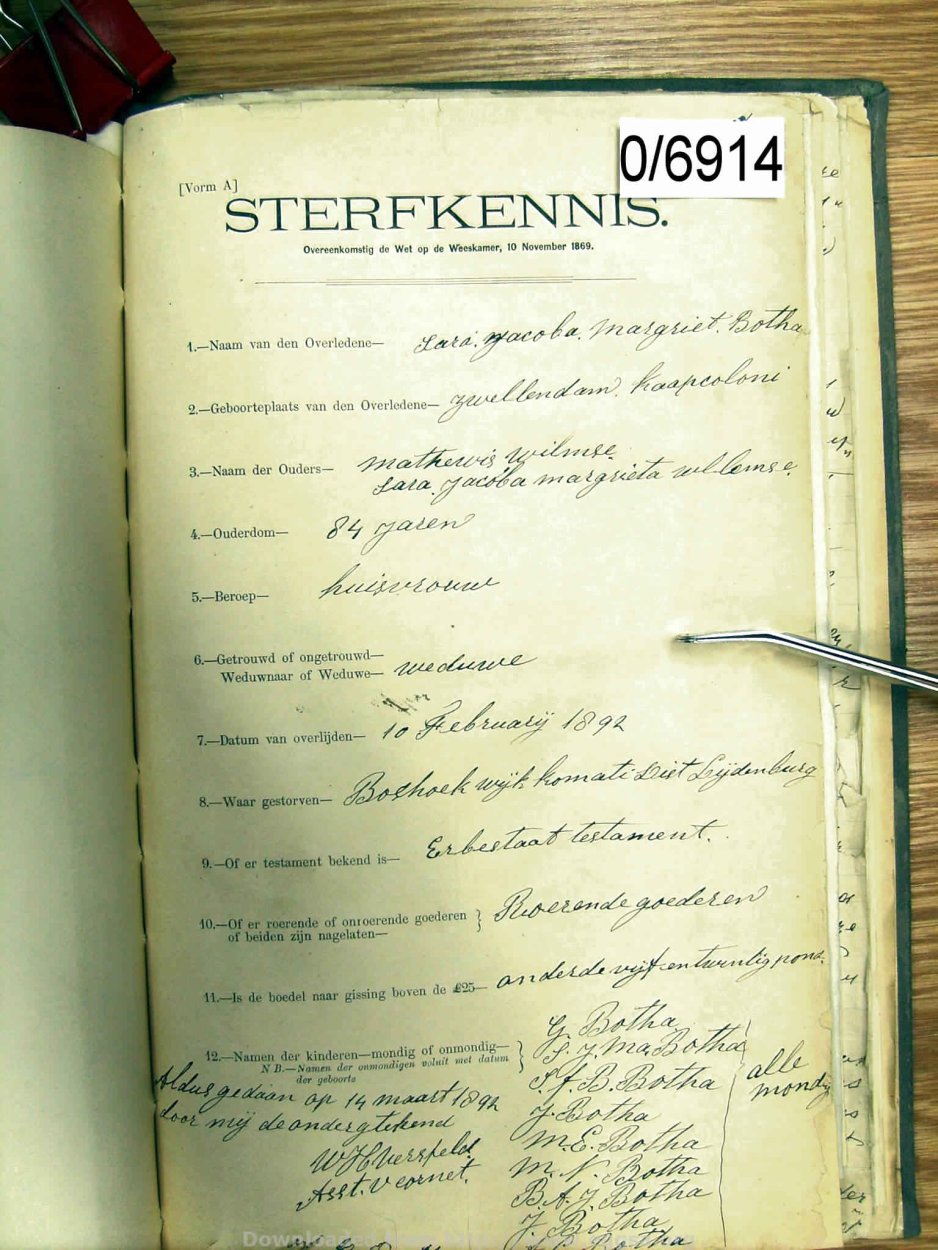 0/6914
[Vorm A]
STERFKENNIS.
Overeenkomstig de Wet op de Weeskamer, 10 November 1869.
1.—Naam van den Overledene— Sara Jacoba. Margriet. Botha
2.—Geboorteplaats van den Overledene— Zwellendam. Kaapcoloni
3.—Naam der Ouders— Mathewis Wilmse
Sara Jacoba Margrieta Wilemse
4.—Ouderdom— 84 jaren
5.—Beroep— huisvrouw
6.—Getrouwd of ongetrouwd—
Weduwnaar of Weduwe— weduwe
7.—Datum van overlijden— 10 Februarij 1892
8.—Waar gestorven— Boshoek wijk Komati Lijdenburg
9.—Of er testament bekend is— Er bestaat testament.
10.—Of er roerende of onroerende goederen } Roerende goederen
of beiden zijn nagelaten—
11.—Is de boedel naar gissing boven de £25— onder de vijf en twintig pond.
12.—Namen der kinderen—mondig of onmondig— }
N B.—Namen der onmondigen voluit met datum
der geboorte
G. Botha
S. J. Ma. Botha
S. f. B. Botha
J. Botha
M. E. Botha
M. N. Botha
B. A. J. Botha
J. Botha
Botha
alle
mondig
Aldus gedaan op 14 maart 1892
door mij de ondergtekend
W H Versfeld
Asst. V cornet.